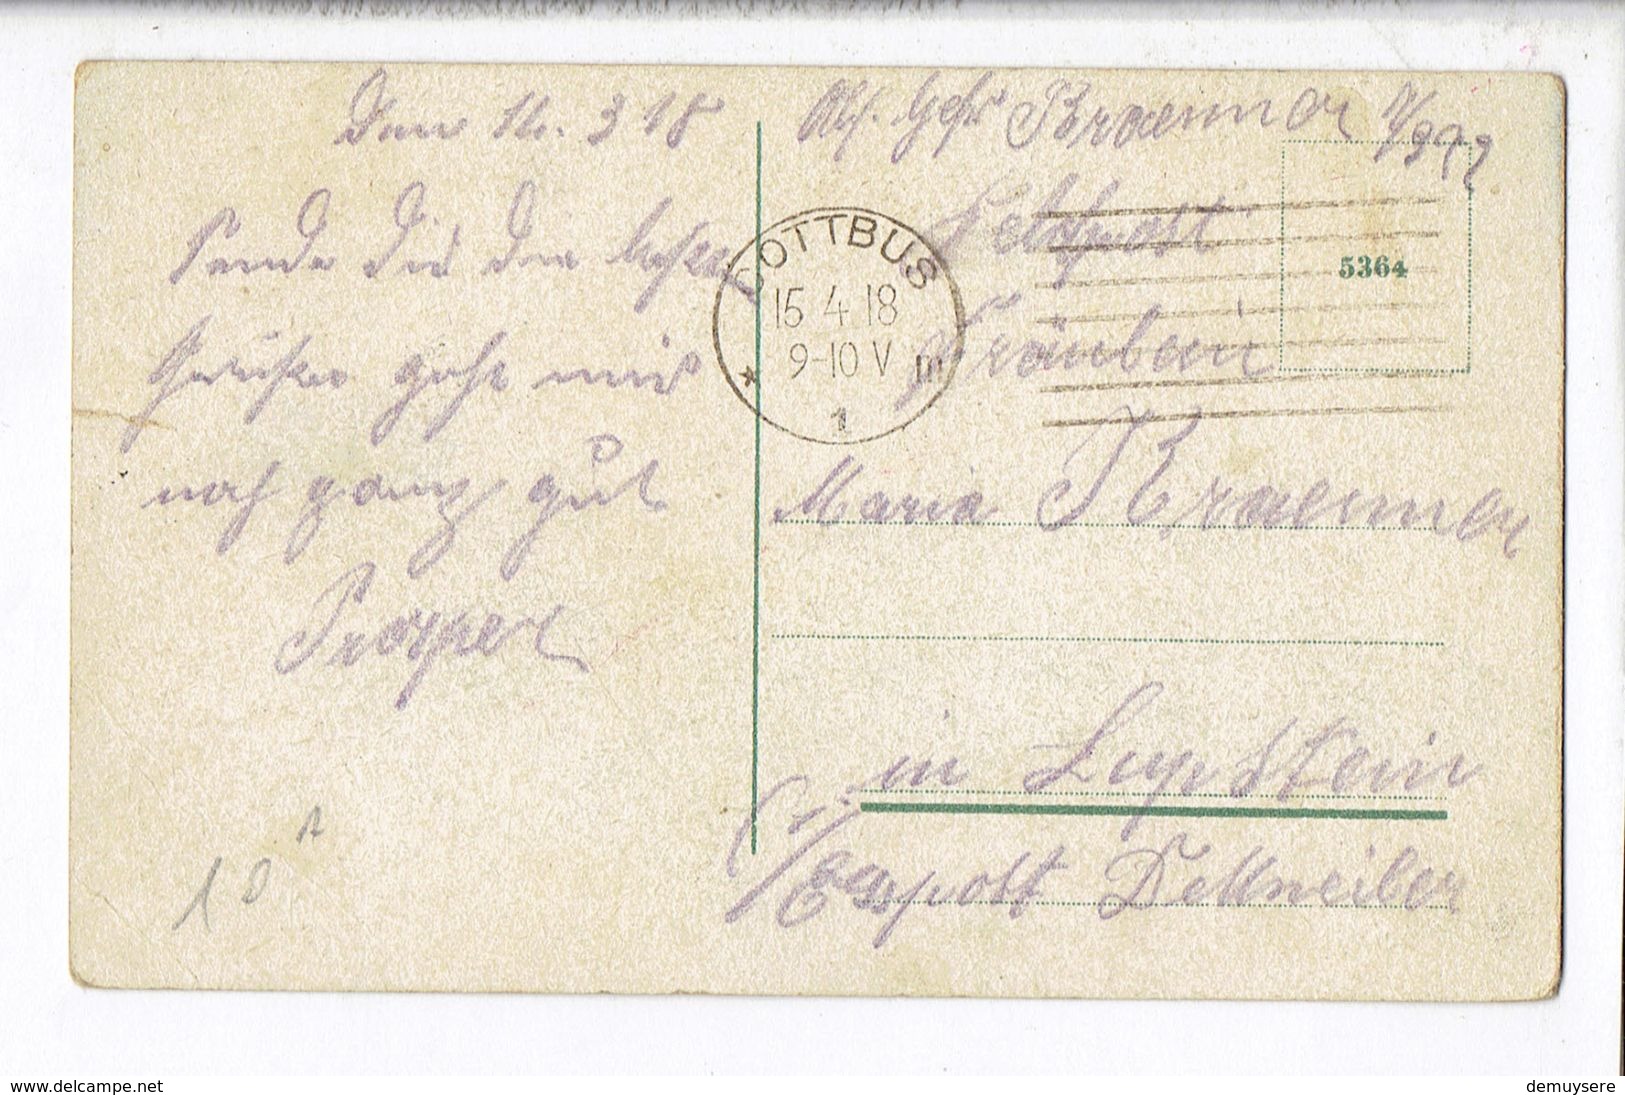 Den 14. 3 18
Sende Dir die besten
Grüße geht mir
noch ganz gut
Prosper
Abs. Gefr Kraemer
Feldpost
COTTBUS
15 4 18
9-10 V
m
* 1
5364
Fräulein
Maria Kraemer
in Lupstein
Post Dettweiler
www.delcampe.net
demuysere